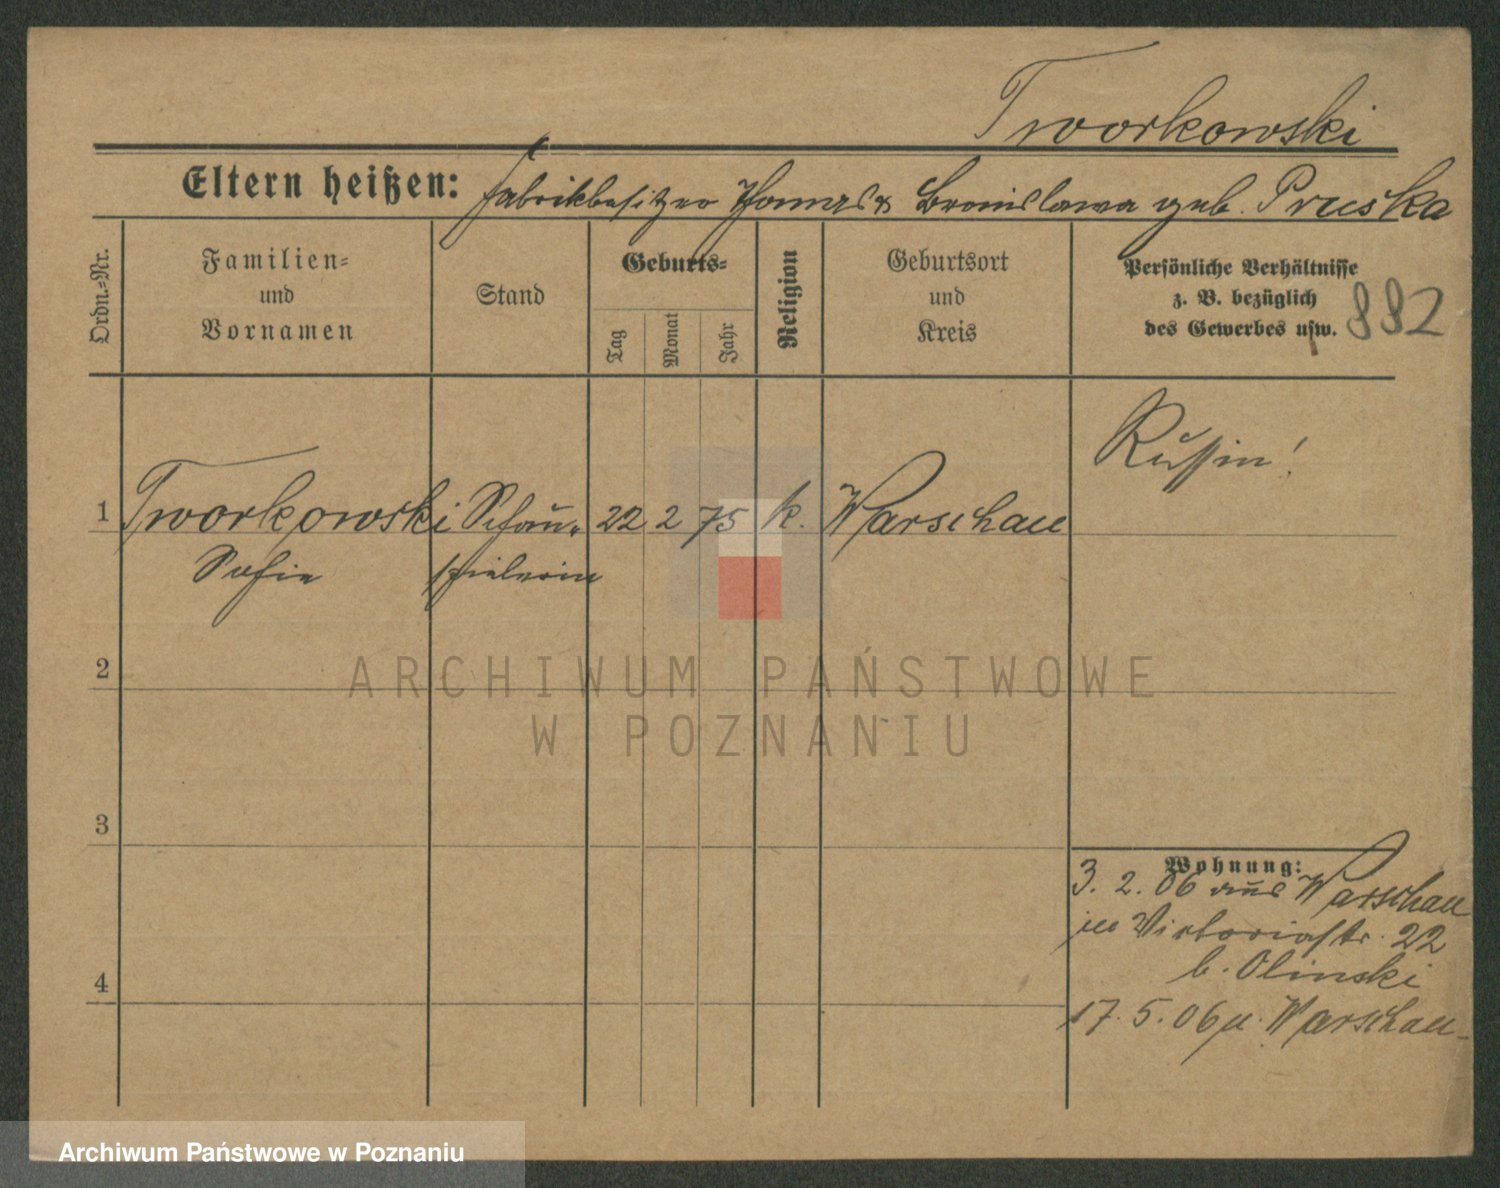 Tworkowski
Eltern heißen: Fabrikbesitzer Thomas & Bronislawa geb. Pruska
Ordn.-Nr.
Familien-
und
Vornamen
Stand
Geburts-
Tag
Monat
Jahr
Religion
Geburtsort
und
Kreis
Persönliche Verhältnisse
z. B. bezüglich
des Gewerbes usw.
882
Russin!
1 Tworkowski Schau- 22 2 75 k. Warschau
Sofie spielerin
2
3
4
Wohnung:
3. 2. 06 aus Warschau
in Victoriastr. 22
b. Olinski
17. 5. 06 n. Warschau
ARCHIWUM PAŃSTWOWE
W POZNANIU
Archiwum Państwowe w Poznaniu